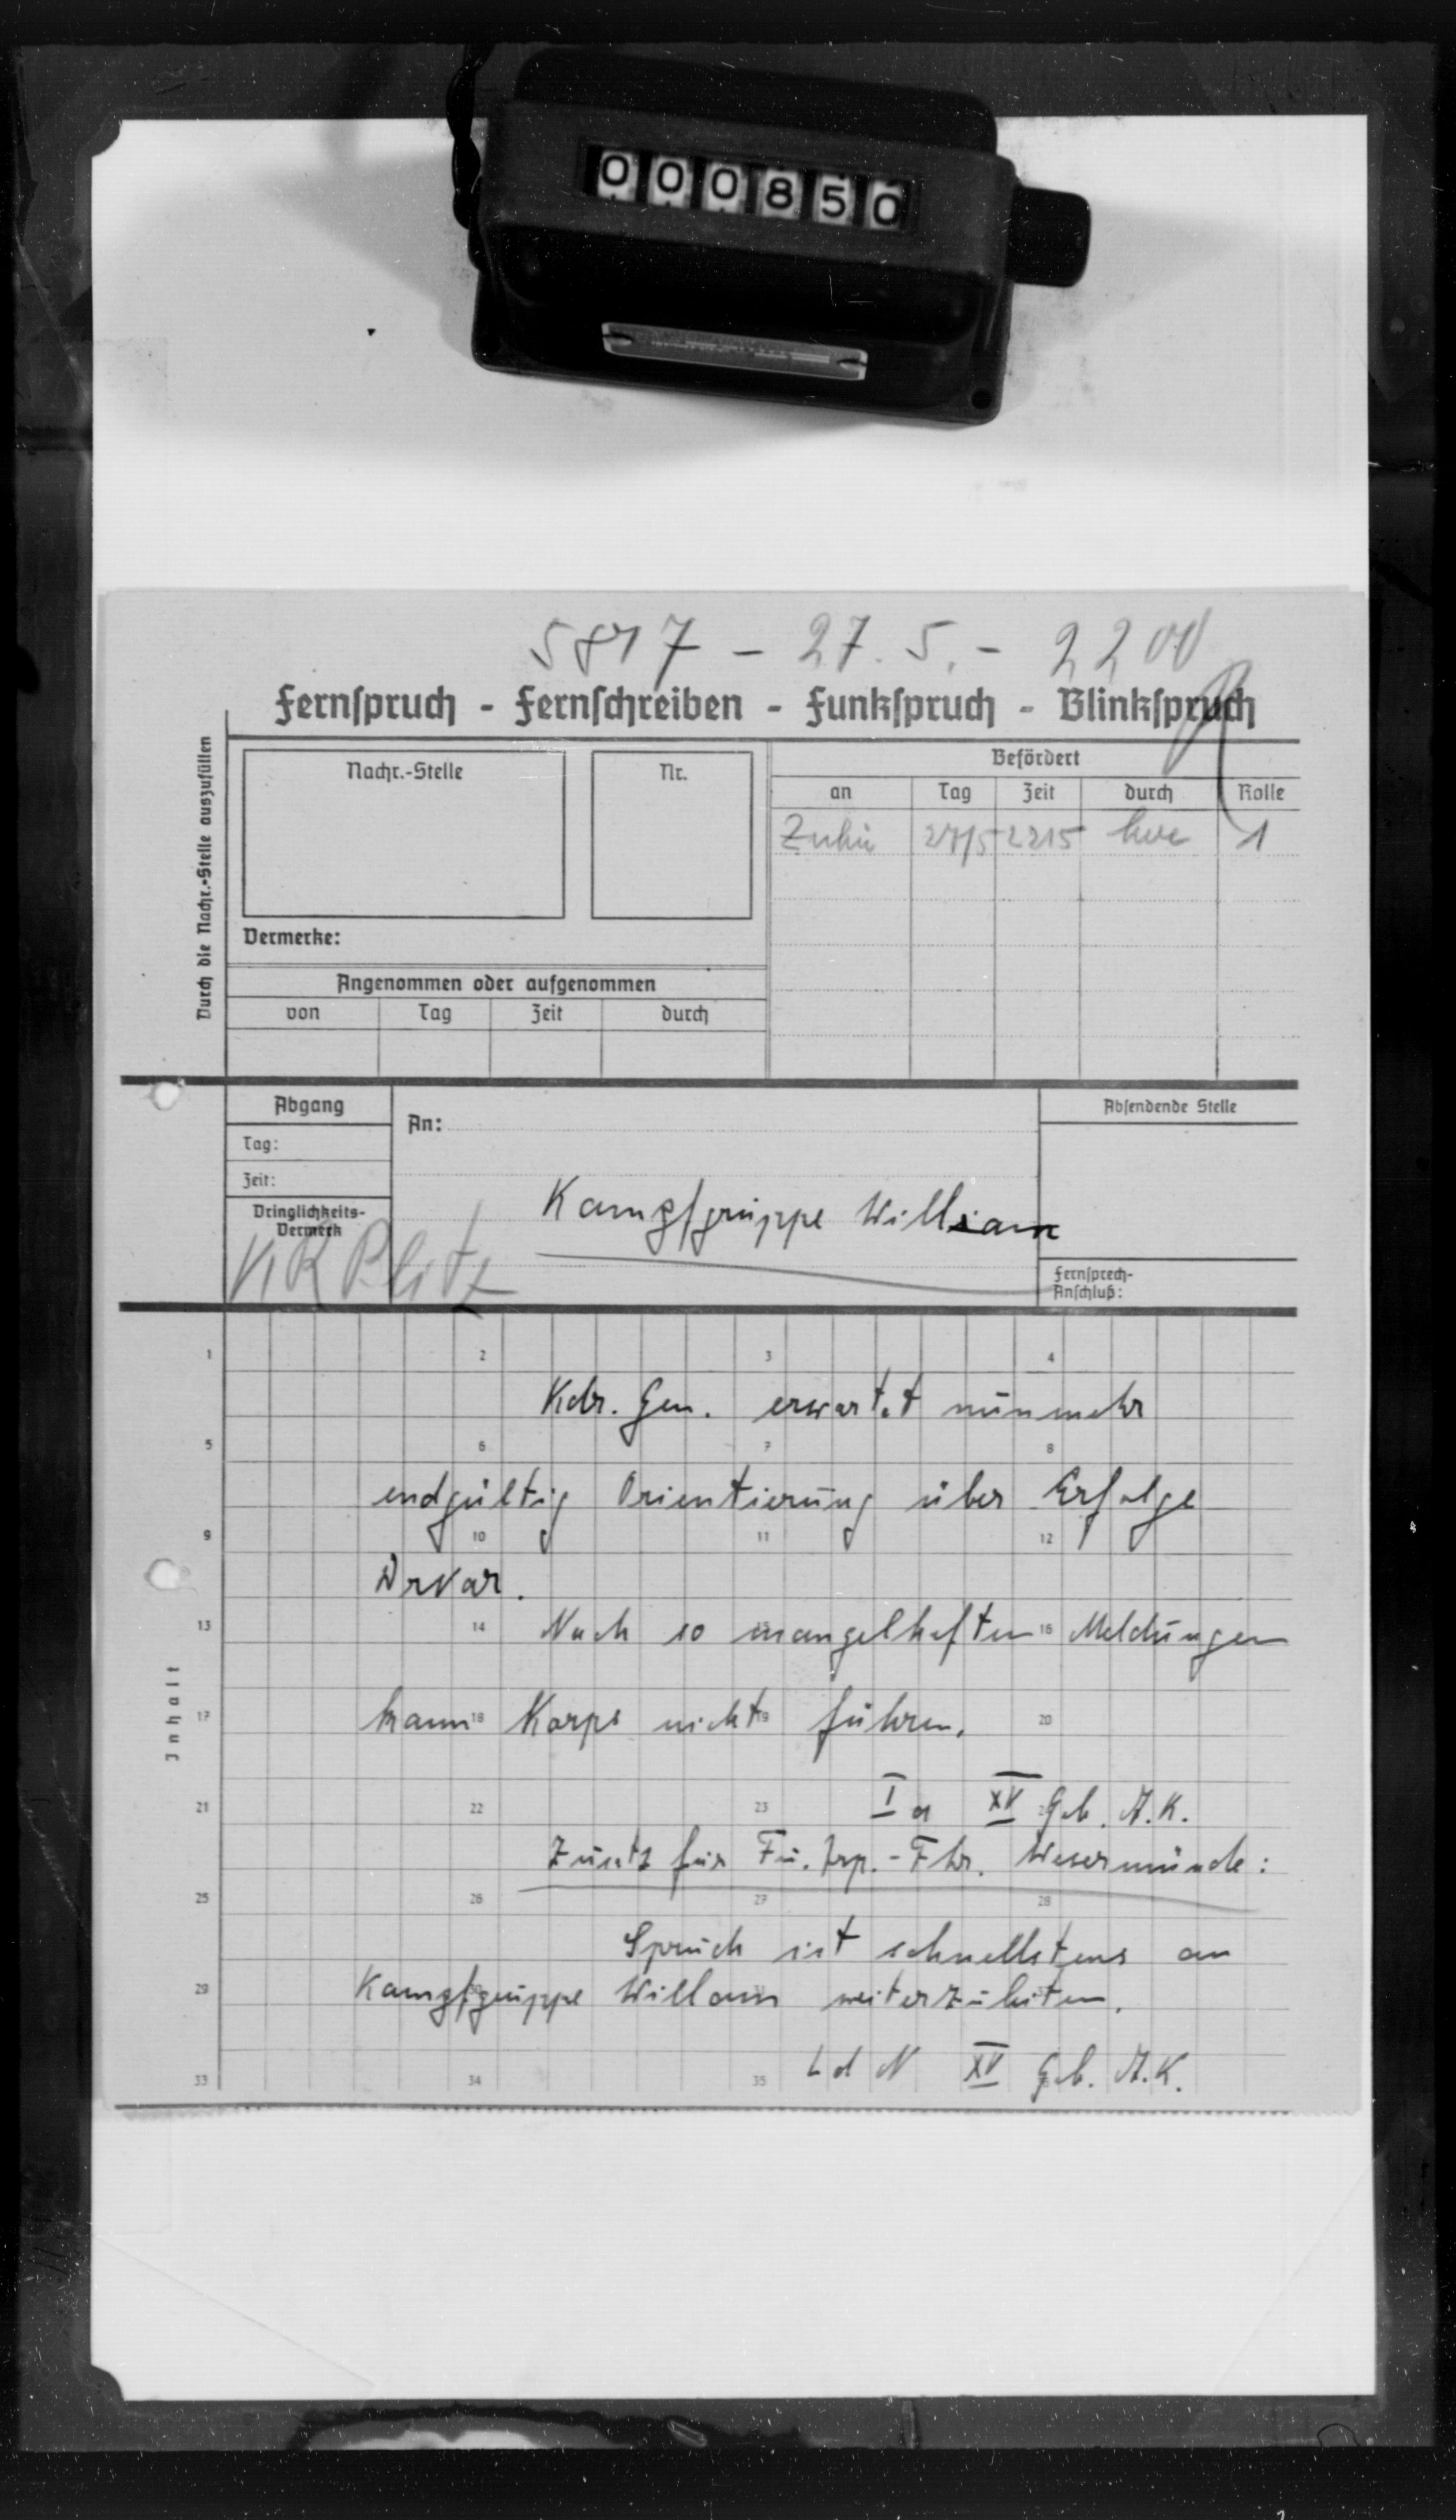 000850
5817 - 27. 5. - 2200
Fernspruch - Fernschreiben - Funkspruch - Blinkspruch
Durch die Nachr.-Stelle auszufüllen
Nachr.-Stelle
Nr.
Befördert
an Tag Zeit durch Rolle
27/5 2215 1
Vermerke:
Angenommen oder aufgenommen
von Tag Zeit durch
Abgang
An:
Absendende Stelle
Tag:
Zeit:
Dringlichkeits-
Vermerk
Kampfgruppe William
KR Blitz
Fernsprech-
Anschluß:
Inhalt
1 2 3 4
Kdr. Gen. erwartet nunmehr
5 6 7 8
endgültig Orientierung über Erfolge
9 10 11 12
Drvar.
13 14 15 16
Nach so mangelhaften Meldungen
17 18 19 20
kann Korps nicht führen.
21 22 23 24
Ia XV Geb. A.K.
Zusatz für Fu. Trp.-Fhr. Wesermünde:
25 26 27 28
Spruch ist schnellstens an
29
Kampfgruppe Willam weiterzuleiten.
LdN XV Geb. A.K.
33 34 35